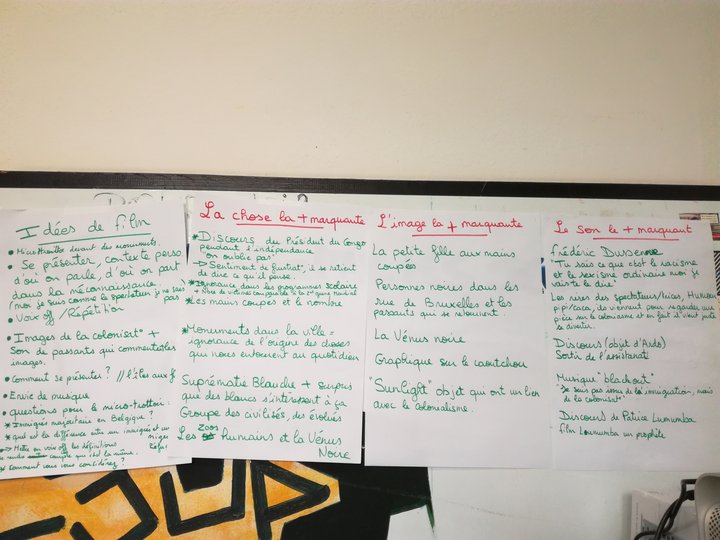 Idées de film
• Micro trottoir devant des monuments.
• Se présenter, contexte perso
d'où on parle, d'où on part
dans la méconnaissance.
(moi je suis comme le spectateur je ne sais
pas
• Voix off / Répétition
• Images de la colonisat° +
Son de passants qui commentent les
images.
• Comment se présenter ? //
• Envie de musique
• questions pour le micro-trottoir:
* Immigrés majoritaire en Belgique ?
* quel est la différence entre un immigré et un
→ Mettre en voix off les définitions
compte qui c'est la même.
comment vous vous considérez ?
La chose la + marquante
* Discours du Président du Congo
pendant l'indépendance
"on oublie pas"
→ Sentiment de frustrat°, il se retient
de dire ce qu'il pense
* Ignorance dans les programmes scolaire
+ Nbre de victimes comparable à la 2nd guerre mondiale
* Les mains coupées et le nombre
* Monuments dans la ville =
ignorance de l'origine des choses
qui nous entourent au quotidien
Suprématie Blanche + surpris
que des blancs s'intéressent à ça
Groupe des civilisés, des évolués
Les zoos humains et la Vénus
Noire
L'image la + marquante
La petite fille aux mains
coupées
Personnes noires dans les
rue de Bruxelles et les
passants qui se retournent.
La Vénus noire
Graphique sur le caoutchou
"Sunlight" objet qui ont un lien
avec le colonialisme.
Le son le + marquant
frédéric Dussenne
"Tu sais ce que c'est le racisme
et le sexisme ordinaire moi je
vais te le dire"
Les rires des spectateurs/trices, Humour
pipi/caca, ils viennent pour regarder une
pièce sur le colonialisme et en fait il vient juste
se divertir.
Discours (objet d'Ardo)
Sortir de l'assistanat
Musique "blackout"
"Je suis pas issus de l'immigration, mais
de la colonisat°"
Discours de Patrice Lumumba
film Loumumba un prophète